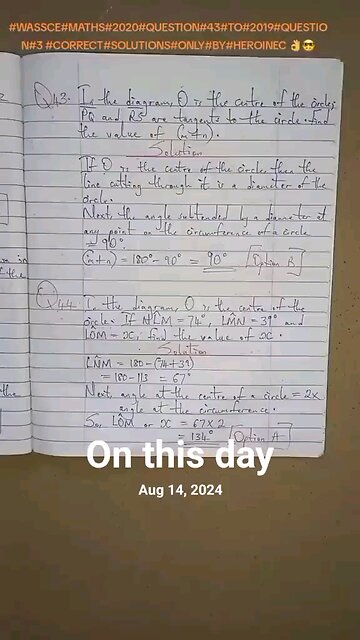 #WASSCE#MATHS#2020#QUESTION#43#TO#2019#QUESTIO
N#3 #CORRECT#SOLUTIONS#ONLY#BY#HEROINEC 👌😎
Q43. In the diagram, O is the centre of the circle,
PQ and RS are tangents to the circle. find
the value of (m+n).
Solution
If O is the centre of the circle, then the
line cutting through it is a diameter of the
circle.
Next, the angle subtended by a diameter at
any point on the circumference of a circle
= 90°
(m+n) = 180° - 90° = 90° [Option B]
Q44. In the diagram, O is the centre of the
circle. If NLM = 74°, LMN = 39° and
LOM = x, find the value of x.
Solution
LNM = 180 - (74+39)
= 180 - 113 = 67°
Next, angle at the centre of a circle = 2x
angle at the circumference.
So, LOM or x = 67 x 2
= 134° [Option A]
On this day
Aug 14, 2024